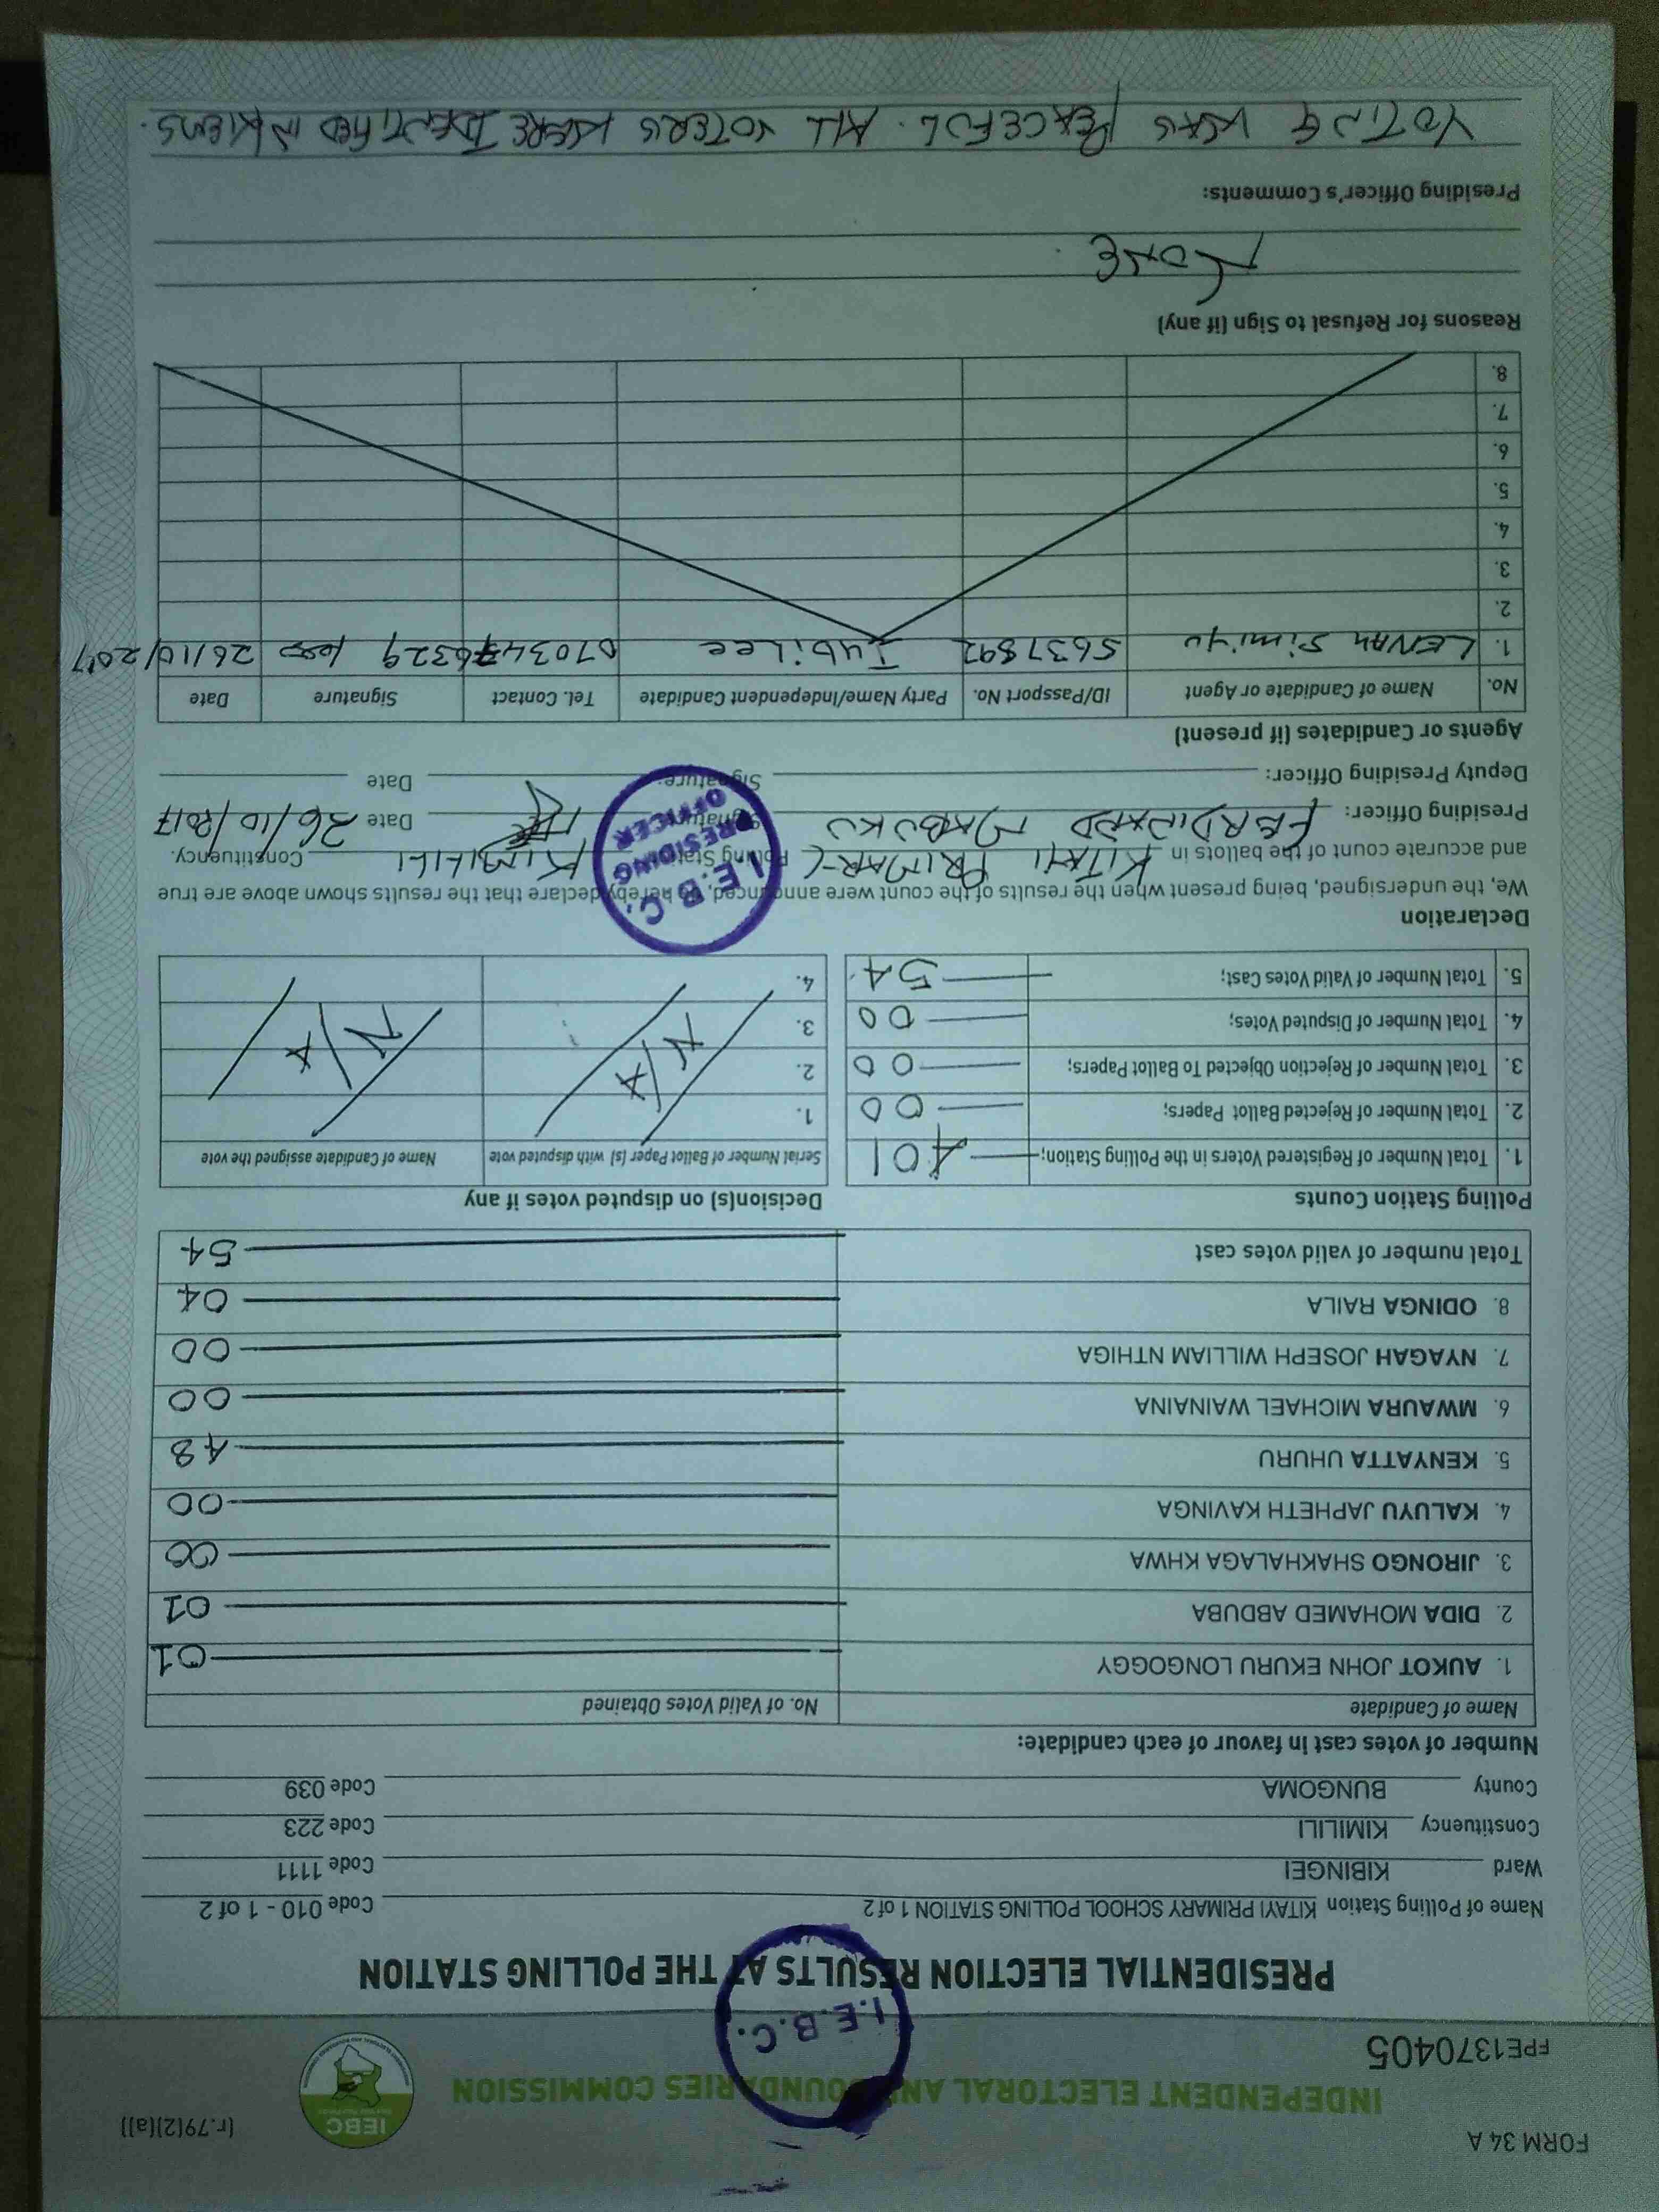 FORM 34 A
(r.79(2)(a))
INDEPENDENT ELECTORAL AND BOUNDARIES COMMISSION
IEBC
FPE1370405
I.E.B.C.
PRESIDENTIAL ELECTION RESULTS AT THE POLLING STATION
Name of Polling Station KITAYI PRIMARY SCHOOL POLLING STATION 1 of 2 Code 010 - 1 of 2
Ward KIBINGEI Code 1111
Constituency KIMILILI Code 223
County BUNGOMA Code 039
Number of votes cast in favour of each candidate:
Name of Candidate No. of Valid Votes Obtained
1. AUKOT JOHN EKURU LONGOGGY 01
2. DIDA MOHAMED ABDUBA 01
3. JIRONGO SHAKHALAGA KHWA 00
4. KALUYU JAPHETH KAVINGA 00
5. KENYATTA UHURU 48
6. MWAURA MICHAEL WAINAINA 00
7. NYAGAH JOSEPH WILLIAM NTHIGA 00
8. ODINGA RAILA 04
Total number of valid votes cast 54
Polling Station Counts
1. Total Number of Registered Voters in the Polling Station; 401
2. Total Number of Rejected Ballot Papers; 00
3. Total Number of Rejection Objected To Ballot Papers; 00
4. Total Number of Disputed Votes; 00
5. Total Number of Valid Votes Cast; 54
Decision(s) on disputed votes if any
Serial Number of Ballot Paper (s) with disputed vote Name of Candidate assigned the vote
1.
2.
3.
4.
N/A N/A
Declaration
We, the undersigned, being present when the results of the count were announced, do hereby declare that the results shown above are true
and accurate count of the ballots in KITAYI PRIMARY Polling Station KIMILILI Constituency.
Presiding Officer: FERDINAND MABUKU Signature: Date 26/10/2017
Deputy Presiding Officer: Signature: Date
I.E.B.C.
PRESIDING
OFFICER
Agents or Candidates (if present)
No. Name of Candidate or Agent ID/Passport No. Party Name/Independent Candidate Tel. Contact Signature Date
1. LENAH Simiyu 5637892 JubiLee 26/10/2017
2.
3.
4.
5.
6.
7.
8.
Reasons for Refusal to Sign (if any)
NONE
Presiding Officer's Comments:
VOTING WAS PEACEFUL. ALL VOTERS WERE IDENTIFIED IN KIEMS.